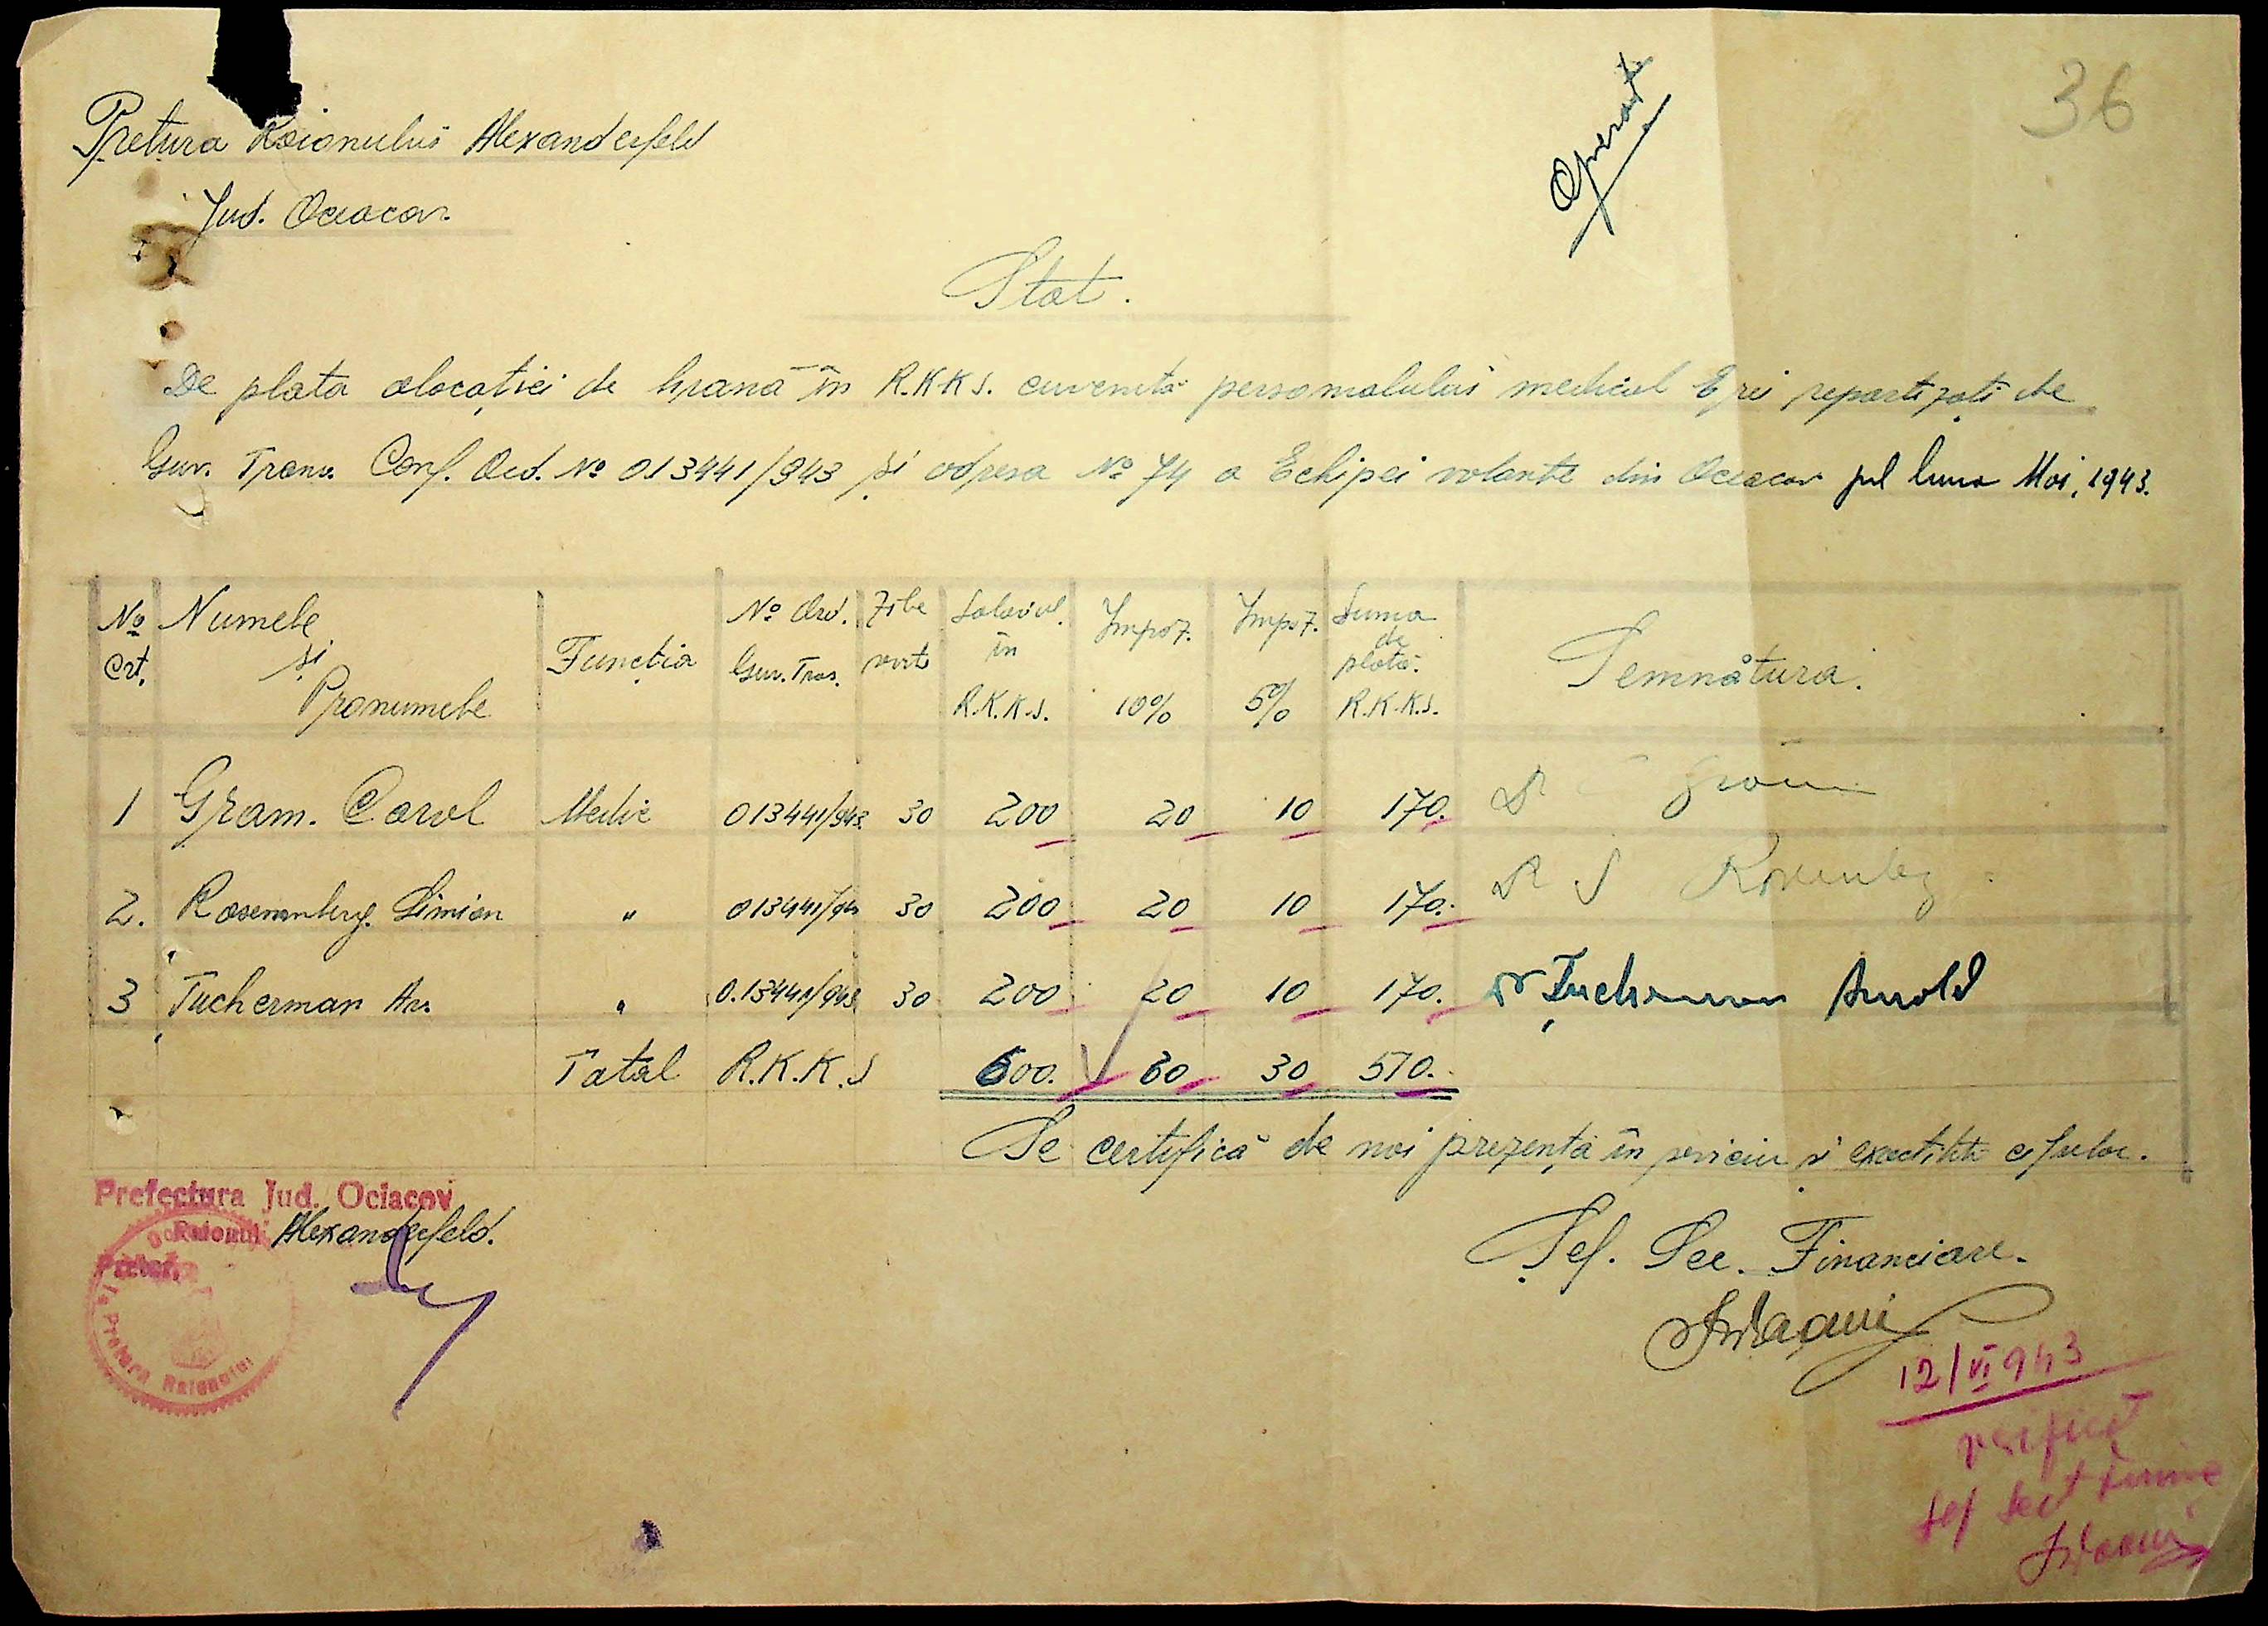 36
Operat
Pretura Raionului Alexanderfeld
Jud. Oceacov.
Stat.
De plata alocației de hrană în R.K.K.S. cuvenită personalului medical Evrei repartizați de
Guv. Trans. Conf. Ord. No 013441/943 și adresa No 74 a Echipei volante din Oceacov pe luna Mai, 1943.
No Crt. Numele și Pronumele Funcția No Ord. Guv. Tras. Zile Salariul în R.K.K.S. Impoz. 10% Impoz. 5% Suma de plată. R.K.K.S. Semnătura.
1 Gram. Carol Medic 013441/943. 30 200 20 10 170. Dr
2. Rosenmberg. Simion " 013441/94 30 200 20 10 170. Dr S Rosenberg
3 Tucherman Ar. " 0.13441/943 30 200 20 10 170. Dr Tucherman Arnold
Total R.K.K.S 600. 60 30 510.
Se certifică de noi prezența în serviciu și exactitate cifrelor.
Prefectura Jud. Ociacov
Raionul Alexanderfeld.
Pretor,
Pretura Raionului
Șef. Sec. Financiare.
12/VI 943
verificat
Șef Sect